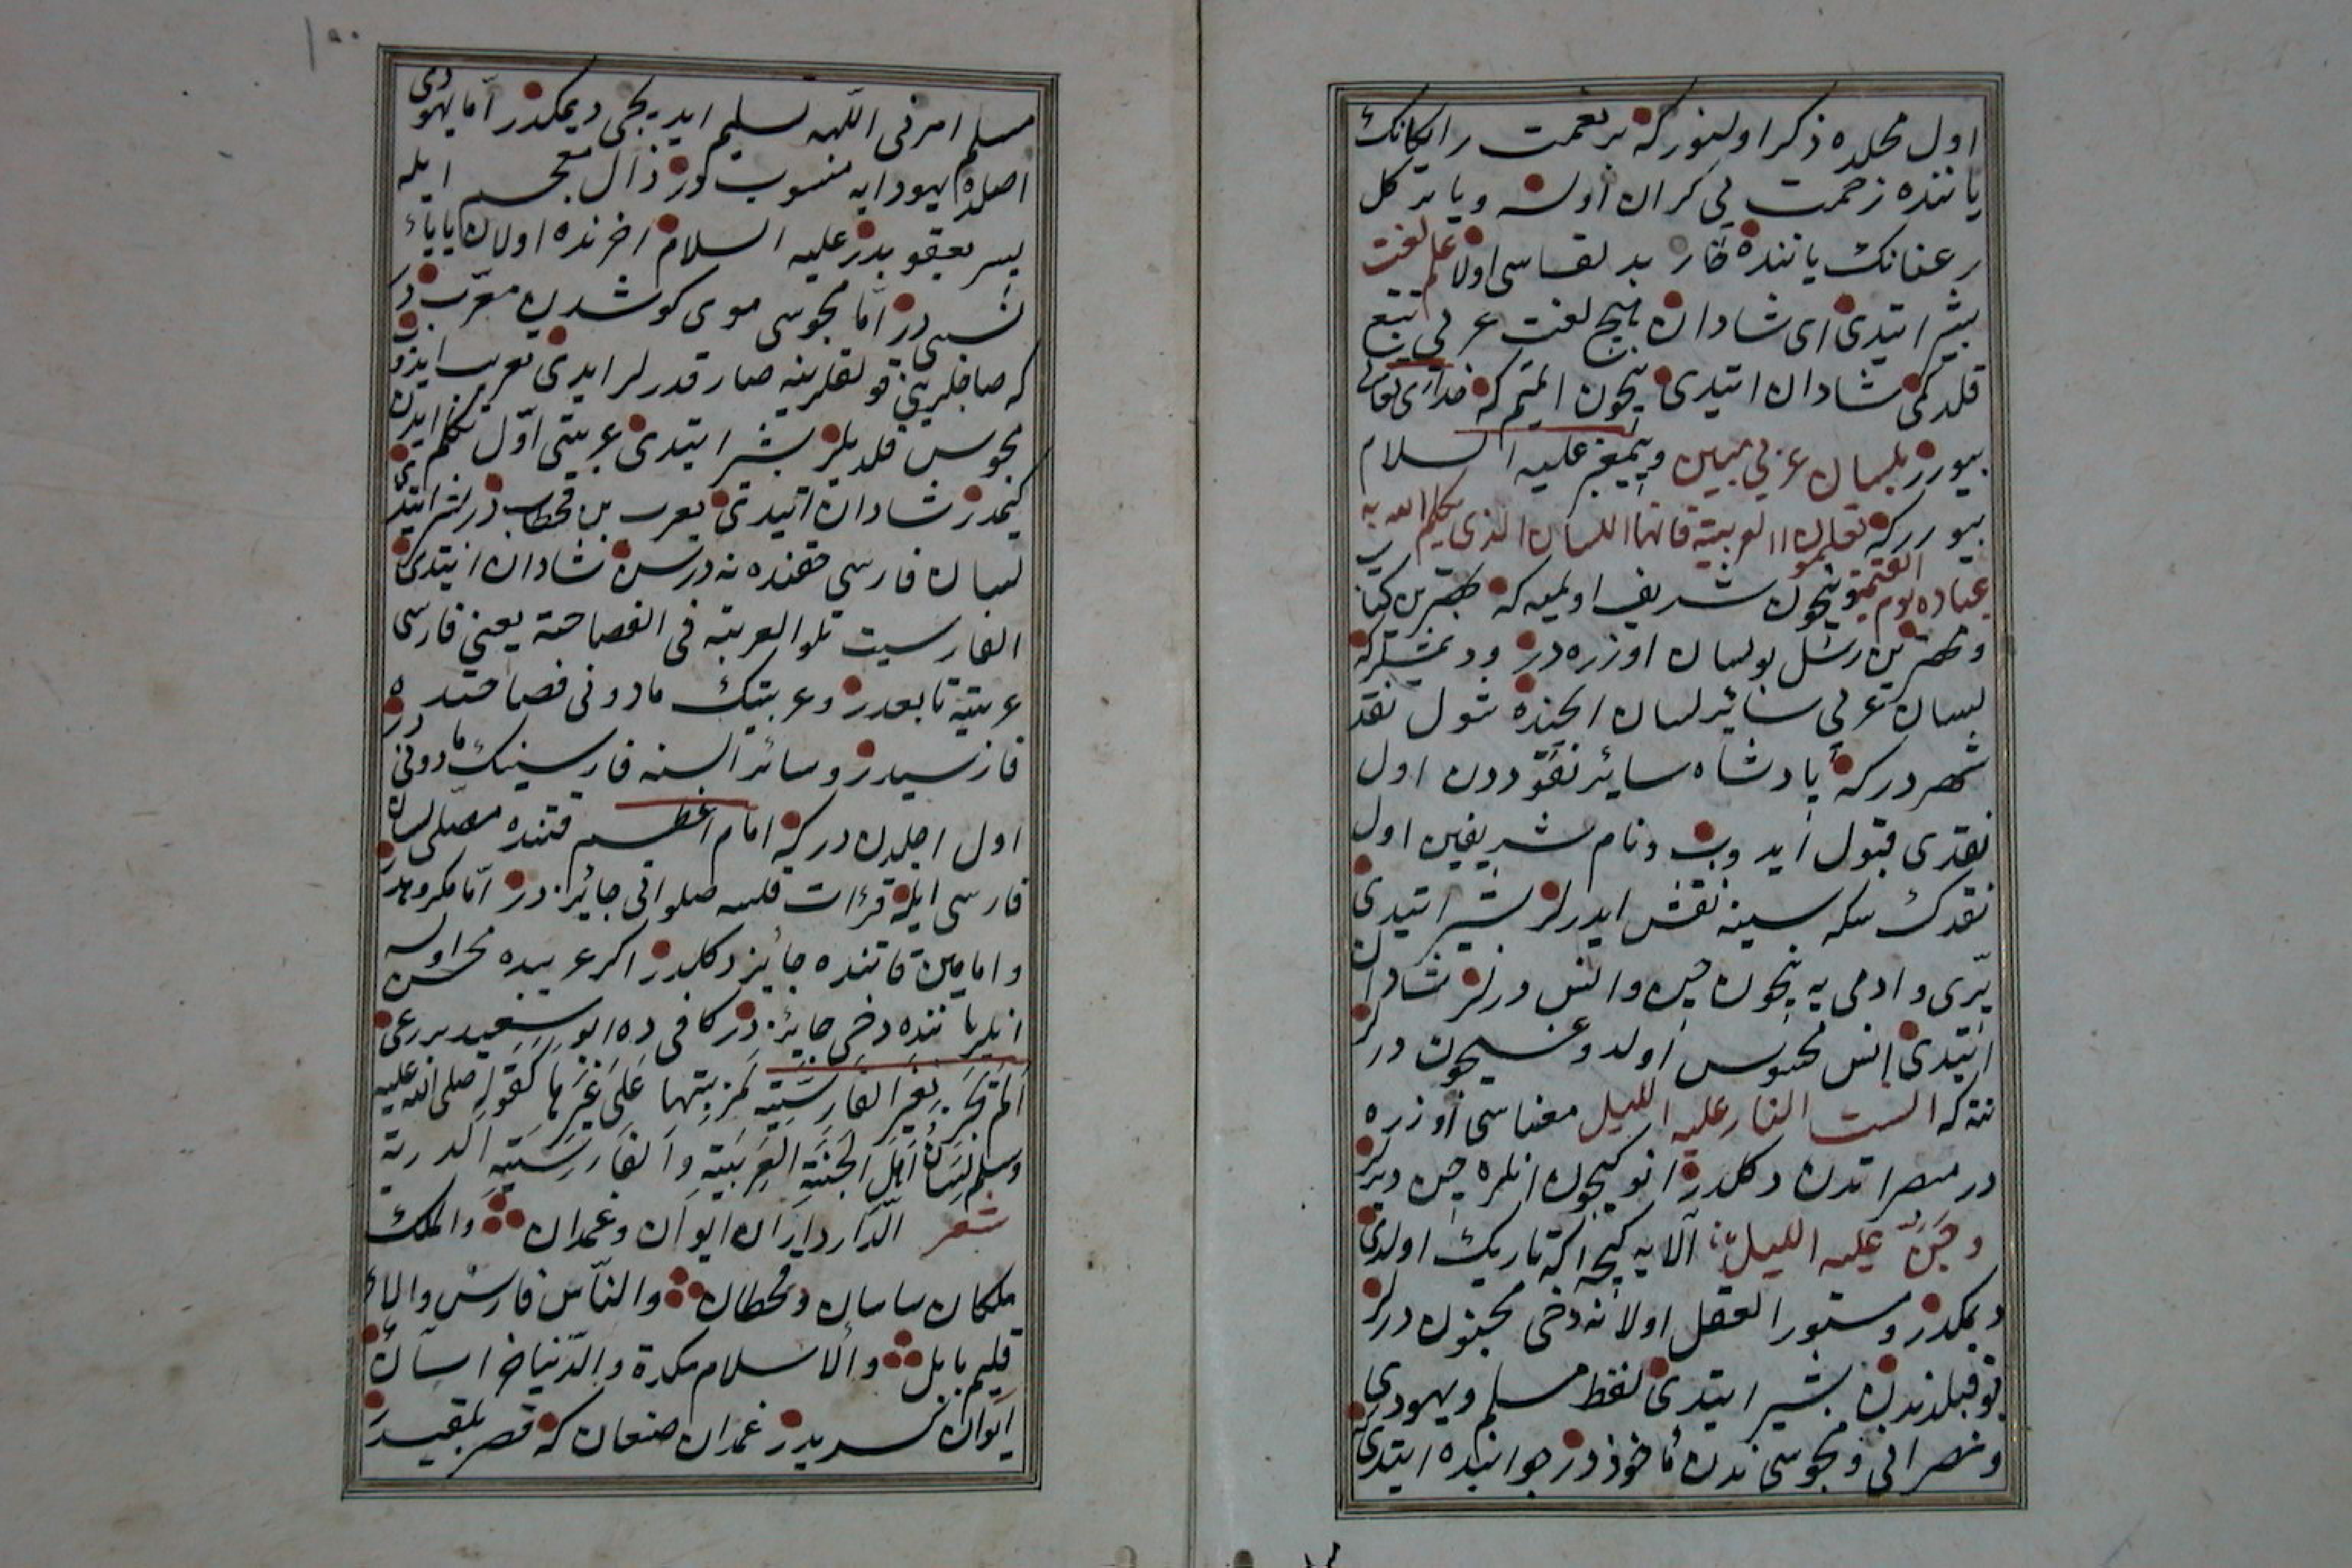 اول محلده ذكر اولنور كه بر نعمت رايكانك
ياننده زحمت بي كران اوله و يا بر كل
رعنانك ياننده خار بد لقاسى اولا علم لغت
بشير ايتدى اى شادان هيچ لغت عربى تتبع
قلدكمى شادان ايتدى نيچون ايتميم كه خداى تعالى
بيورر بلسان عربى مبين و پيغمبر عليه السلام
بيورر كه تعلموا العربية فانها اللسان الذى يكلم الله به
عباده يوم القيمة نيچون شريف اولميه كه بهترين كتاب
و مهترين رسل بو لسان اوزره در و ديمشلر كه
لسان عربى سائر لسان ايچنده شول نقد
شهر در كه پادشاه سائر نقوددن اول
نقدى قبول ايدوب و نام شريفين اول
نقدك سكه سينه نقش ايدرلر بشير ايتدى
پرى و ادمى يه نيچون جن و انس درلر شادان
ايتدى انس محسوس اولدوغيچون درلر
نته كه الست النار عليه الليل معناسى اوزره
در مبصراتدن دكلدر انوكيچون انلره جن ديرلر
و جن عليه الليل الايه كيجه اكا تاريك اولدى
ديمكدر و مستور العقل اولانه دخى مجنون درلر
بو قبيلدندن بشير ايتدى لفظ مسلم و يهودى
و نصرانى و مجوسى ندن مأخوذدر جوابنده ايتدى
مسلم امرنى اللهه تسليم ايديجى ديمكدر اما يهودى
اصلده يهودايه منسوبدر ذال معجم ايله
پسر يعقوبدر عليه السلام اخرنده اولان ياياء
نسبى در اما مجوسى موى كوشدن معربدر
كه صاچلرينى قولقلرينه صارقدرلر ايدى تعريب ايدوب
مجوس قلديلر بشير ايتدى عربيتى اول تكلم ايدن
كيمدر شادان ايتدى يعرب بن قحطاندر بشير ايتدى
لسان فارسى حقنده نه درسن شادان ايتدى
الفارسيت تلو العربية فى الفصاحة يعنى فارسى
عربيته تابعدر و عربيتك مادونى فصاحتده
فارسيدر و سائر السنه فارسينك مادونى در
اول اجلدن در كه امام اعظم قتنده مصلى لسان
فارسى ايله قرأت قلسه صلواتى جائز در اما مكروهدر
و امامين قاتنده جائز دكلدر اكر عربيده محسن اولسه
انلر ياننده دخى جائز در كافى ده ابو سعيد بردعى
الم تجز بغير الفارسية لمزيتها على غيرها كقوله صلى الله عليه
وسلم لسان اهل الجنة العربية و الفارسية الدرية
شعر الدار داران ايوان و غمدان والملك
ملكان ساسان و قحطان والناس فارس والا
قليم بابل والاسلام مكة والدنيا خراسان
ايوان نسر يدر غمدان صنعان كه قصر بلقيسدر